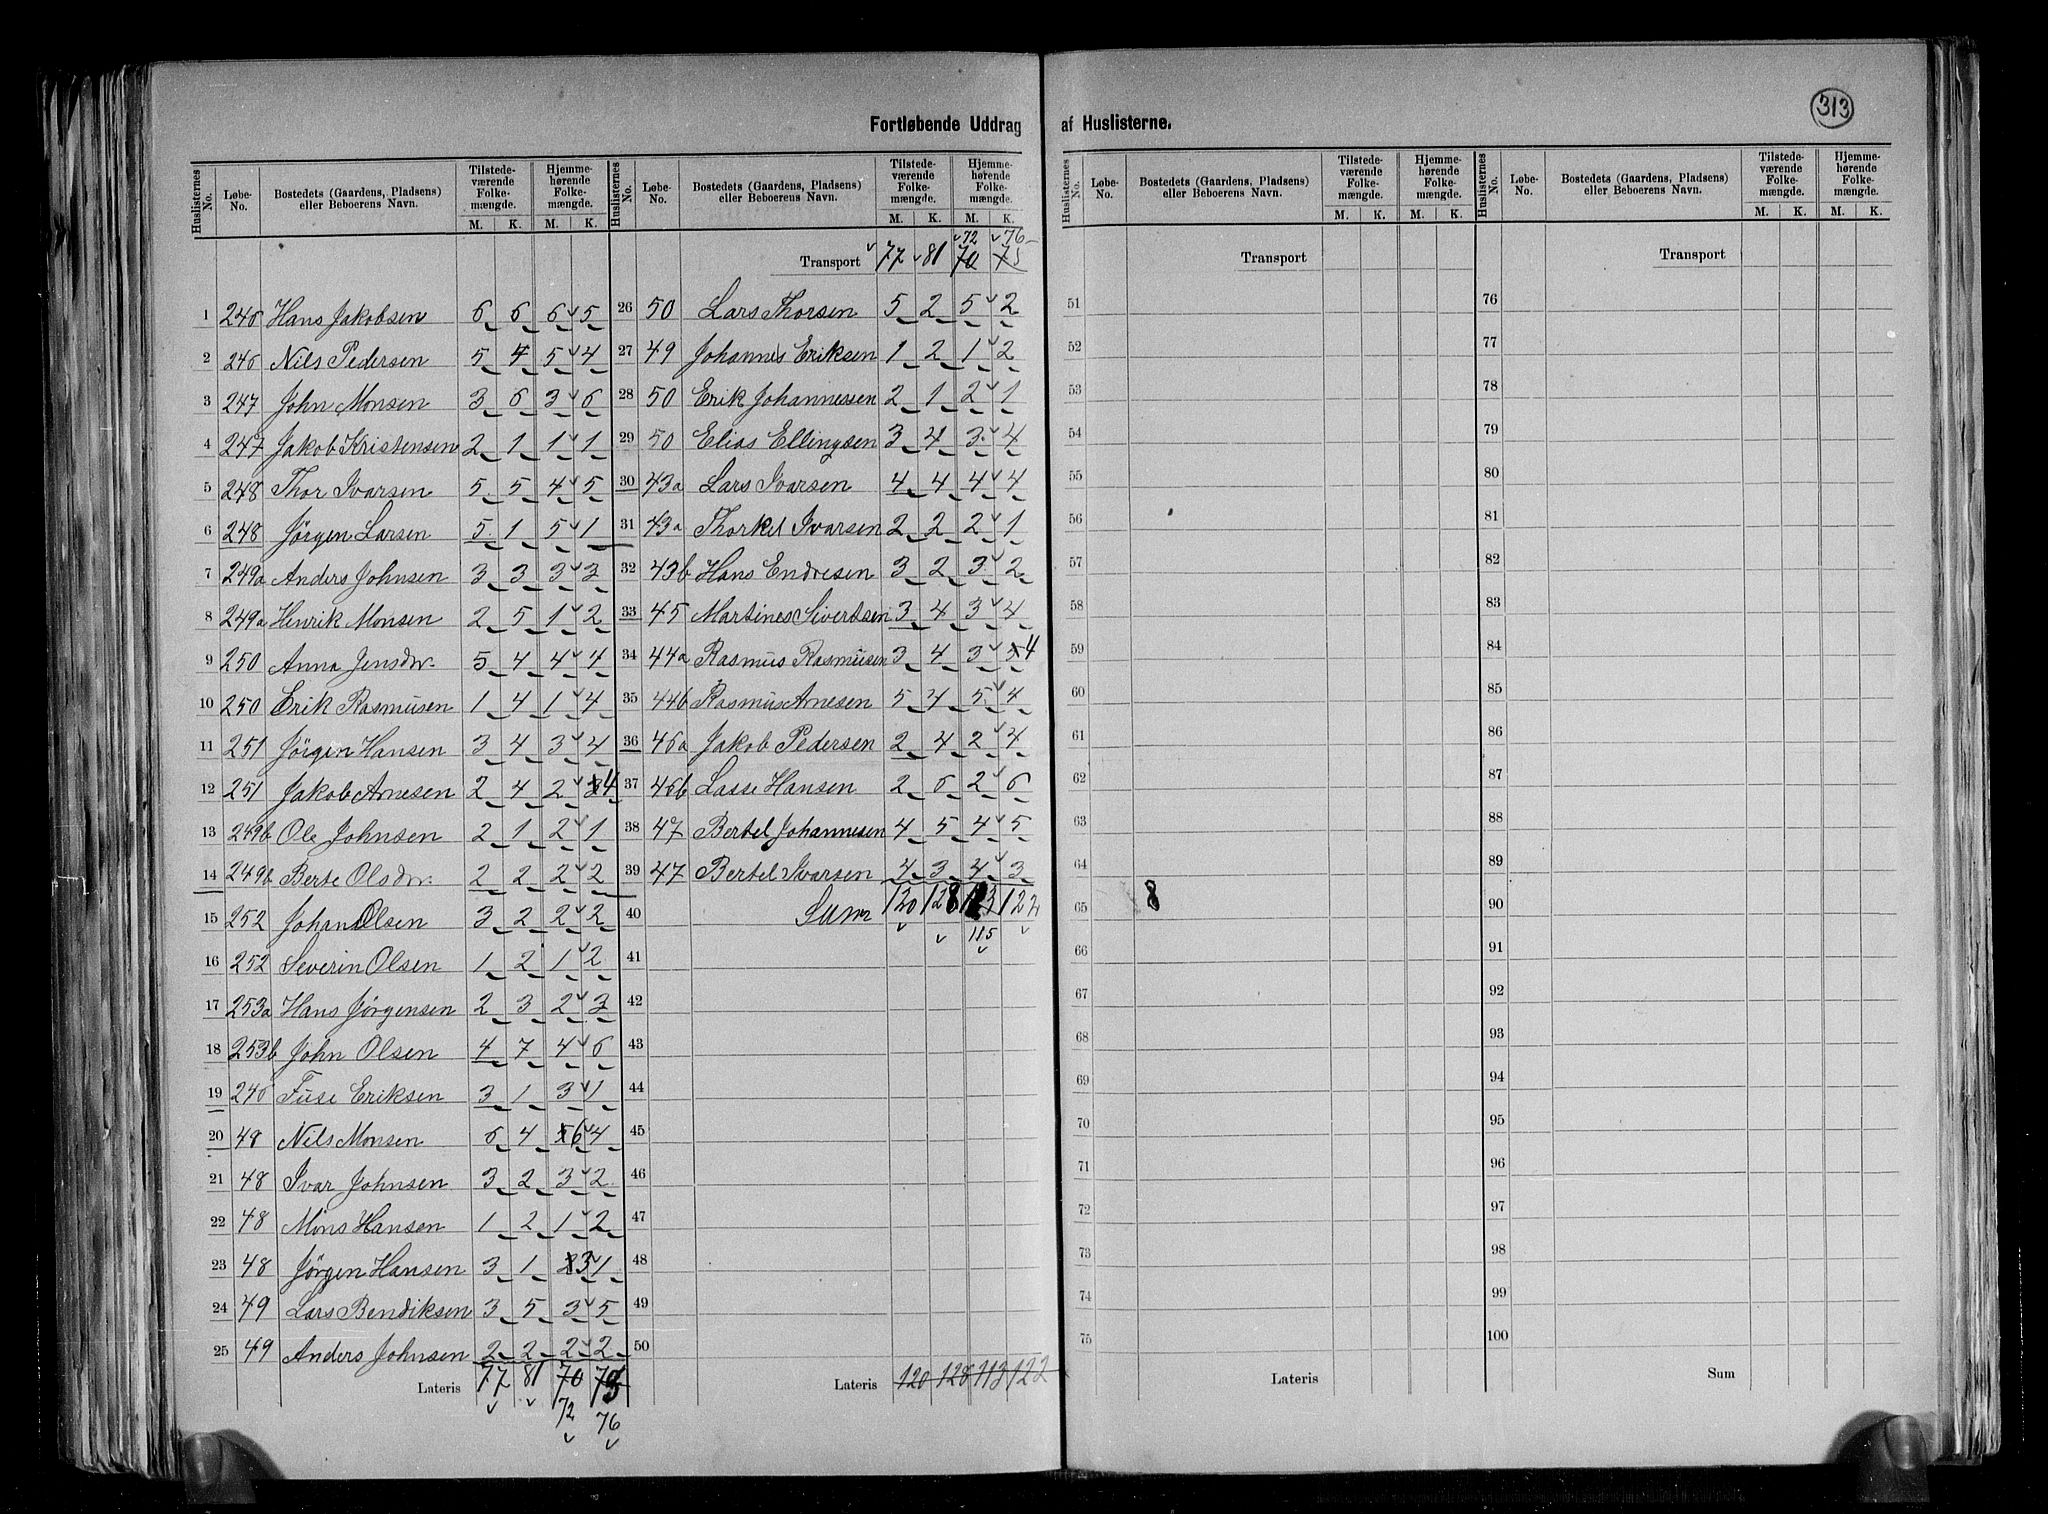 313
Fortløbende Uddrag af Huslisterne.
Huslisternes No. Løbe-No. Bostedets (Gaardens, Pladsens) eller Beboerens Navn. Tilstedeværende Folkemængde. M. K. Hjemmehørende Folkemængde. M. K.
1 246 Hans Jakobsen 6 6 6 5
2 246 Nils Pedersen 5 4 5 4
3 247 John Monsen 3 6 3 6
4 247 Jakob Kristensen 2 1 1 1
5 248 Thor Ivarsen 5 5 4 5
6 248 Jørgen Larsen 5 1 5 1
7 249a Anders Johnsen 3 3 3 3
8 249a Henrik Monsen 2 5 1 2
9 250 Anna Jensdr. 5 4 4 4
10 250 Erik Rasmusen 1 4 1 4
11 251 Jörgen Hansen 3 4 3 4
12 251 Jakob Arnesen 2 4 2 4
13 249b Ole Johnsen 2 1 2 1
14 249b Berte Olsdr. 2 2 2 2
15 252 Johan Olsen 3 2 2 2
16 252 Severin Olsen 1 2 1 2
17 253a Hans Jørgensen 2 3 2 3
18 253b John Olsen 4 7 4 6
19 246 Fuse Eriksen 3 1 3 1
20 48 Nils Monsen 6 4 6 4
21 48 Ivar Johnsen 3 2 3 2
22 48 Mons Hansen 1 2 1 2
23 48 Jörgen Hansen 3 1 3 1
24 49 Lars Bendiksen 3 5 3 5
25 49 Anders Johnsen 2 2 2 2
Lateris 77 81 70 75
72 76
Huslisternes No. Løbe-No. Bostedets (Gaardens, Pladsens) eller Beboerens Navn. Tilstedeværende Folkemængde. M. K. Hjemmehørende Folkemængde. M. K.
72 76
Transport 77 81 70 75
26 50 Lars Thorsen 5 2 5 2
27 49 Johannes Eriksen 1 2 1 2
28 50 Erik Johannessen 2 1 2 1
29 50 Elias Ellingsen 3 4 3 4
30 43a Lars Ivarsen 4 4 4 4
31 43a Thorkel Ivarsen 2 2 2 1
32 43b Hans Endresen 3 2 3 2
33 45 Martines Sivertsen 3 4 3 4
34 44a Rasmus Rasmusen 3 4 3 4
35 44b Rasmus Arnesen 5 4 5 4
36 46a Jakob Pedersen 2 4 2 4
37 46b Lasse Hansen 2 6 2 6
38 47 Bertel Johannesen 4 5 4 5
39 47 Bertel Ivarsen 4 3 4 3
40 Sum 120 128 113 122
115
41
42
43
44
45
46
47
48
49
50
Lateris 120 128 113 122
Huslisternes No. Løbe-No. Bostedets (Gaardens, Pladsens) eller Beboerens Navn. Tilstedeværende Folkemængde. M. K. Hjemmehørende Folkemængde. M. K.
Transport
51
52
53
54
55
56
57
58
59
60
61
62
63
64
65 8
66
67
68
69
70
71
72
73
74
75
Lateris
Huslisternes No. Løbe-No. Bostedets (Gaardens, Pladsens) eller Beboerens Navn. Tilstedeværende Folkemængde. M. K. Hjemmehørende Folkemængde. M. K.
Transport
76
77
78
79
80
81
82
83
84
85
86
87
88
89
90
91
92
93
94
95
96
97
98
99
100
Sum